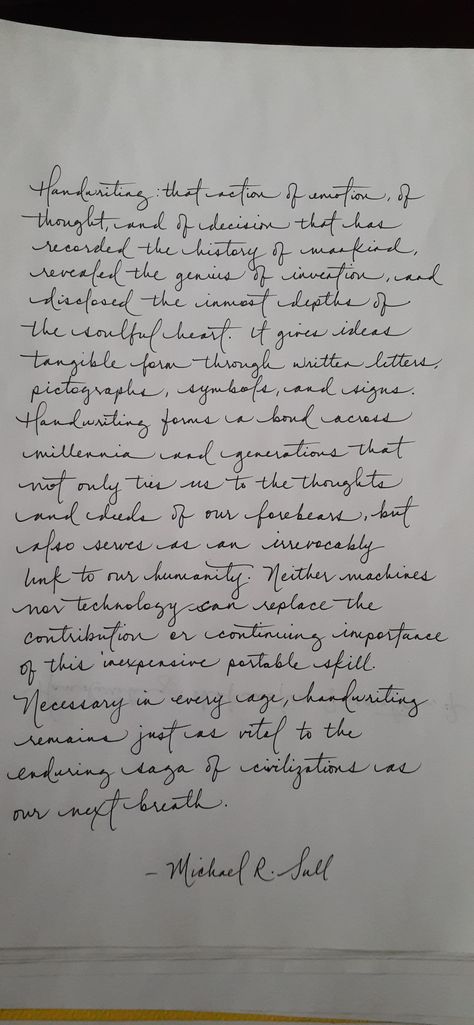 Handwriting: that action of emotion, of
thought, and of decision that has
recorded the history of mankind,
revealed the genius of invention, and
disclosed the inmost depths of
the soulful heart. It gives ideas
tangible form through written letters,
pictographs, symbols, and signs.
Handwriting forms a bond across
millennia and generations that
not only ties us to the thoughts
and deeds of our forebears, but
also serves as an irrevocably
link to our humanity. Neither machines
nor technology can replace the
contribution or continuing importance
of this inexpensive portable skill.
Necessary in every age, handwriting
remains just as vital to the
enduring saga of civilizations as
our next breath.
- Michael R. Sull